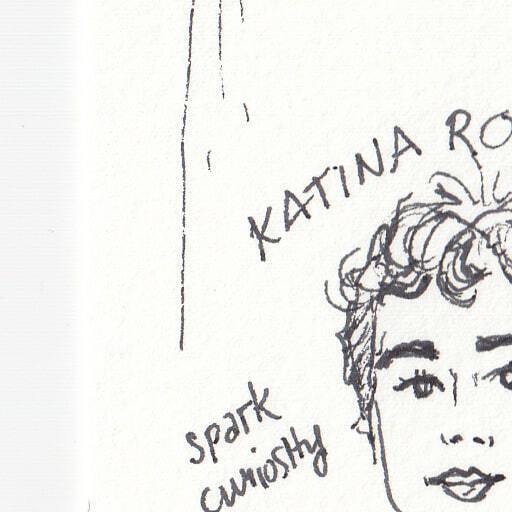 KATINA RO
spark
curiosity